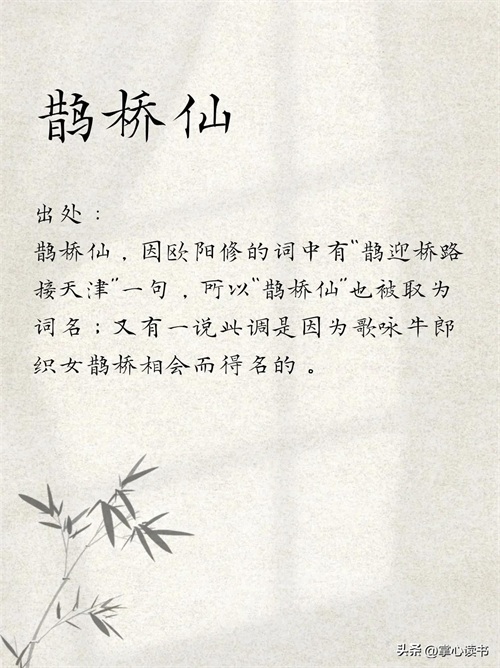 鹊桥仙
出处：
鹊桥仙，因欧阳修的词中有“鹊迎桥路
接天津”一句，所以“鹊桥仙”也被取为
词名；又有一说此调是因为歌咏牛郎
织女鹊桥相会而得名的。
头条 @掌心读书